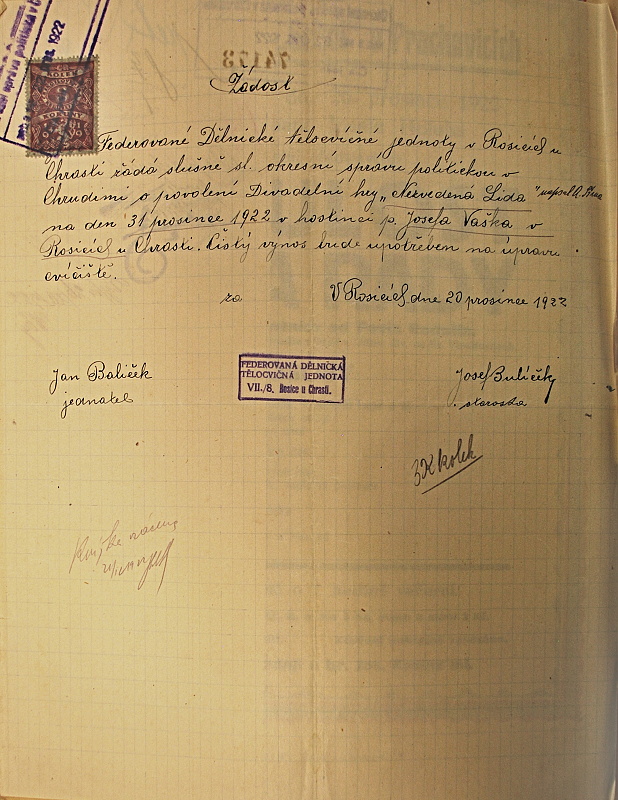 1922
74173
Žádost
Federované Dělnické tělocvičné jednoty v Rosicích u
Chrasti žádá slušně sl. okresní správu politickou v
Chrudimi o povolení Divadelní hry „Nevedená Lida" napsal A.
na den 31 prosince 1922 v hostinci p. Josefa Vaška v
Rosicích u Chrasti. Čistý výnos bude upotřeben na úpravu
cvičiště.
za
V Rosicích dne 20 prosince 1922
Jan Balíček
jednatel
FEDEROVANÁ DĚLNICKÁ
TĚLOCVIČNÁ JEDNOTA
VII./8. Rosice u Chrasti.
Josef Bulíček
starosta
3K kolek